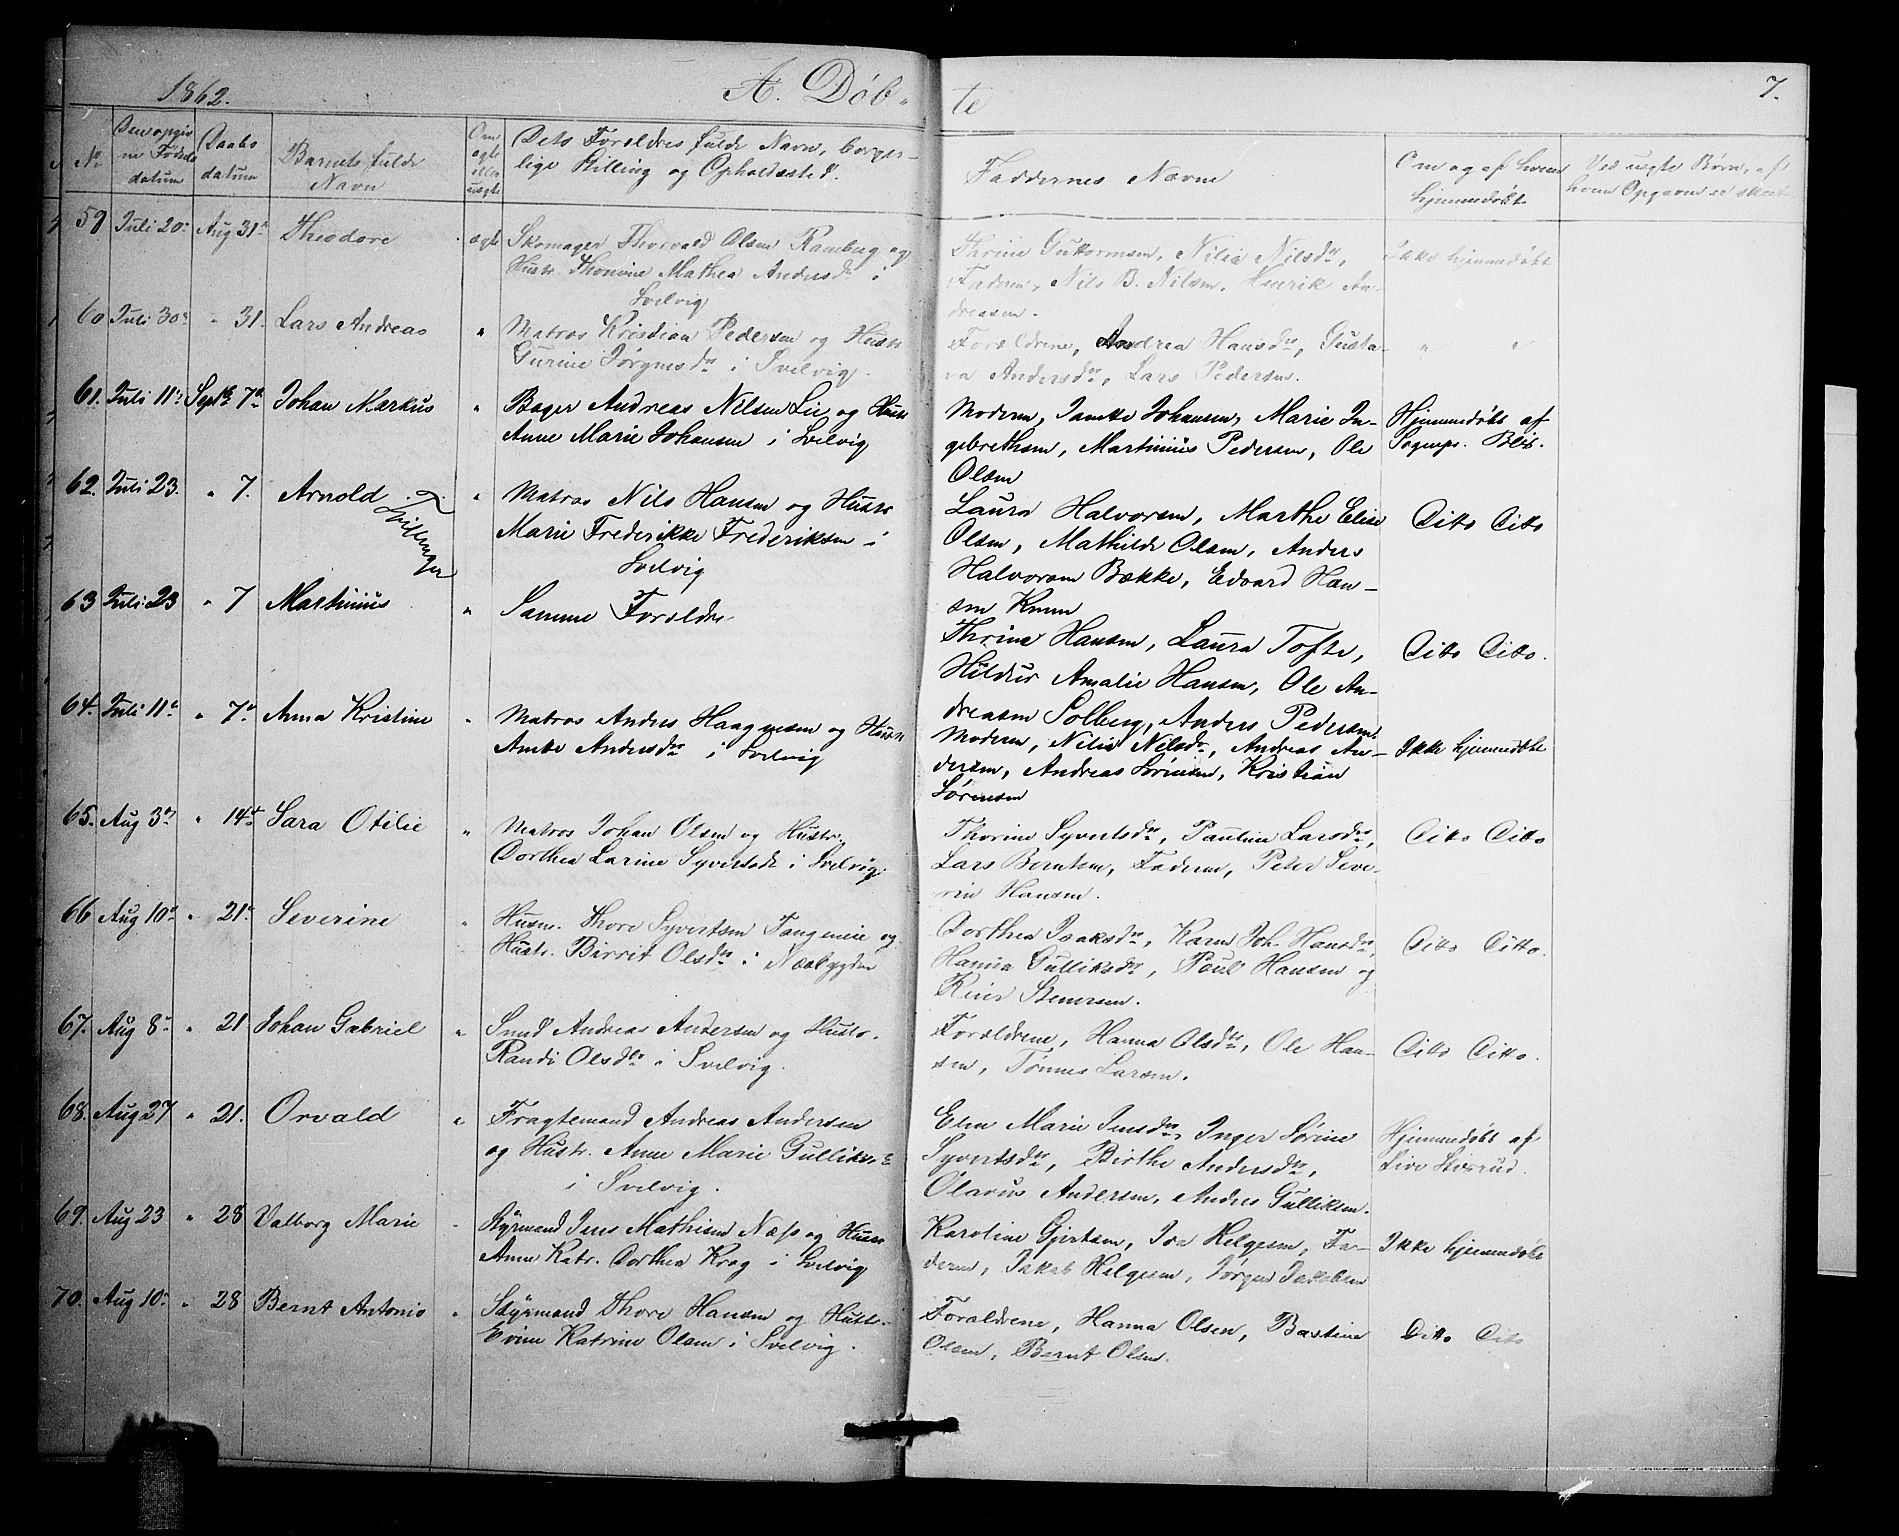 1862. A. Døb- te 7.
No Den opgivne Fødsels datum Daabs datum Barnets fulde Navn Om ægte eller uægte Dets Forældres fulde Navn, borgerlige Stilling og Opholdssted. Faddernes Navne Om og af hvem hjemmedøbt Ved uægte Børn, af hvem Opgaven er skeet
59 Juli 20de Aug 31te Theodore ægte Skomager Thorvald Olsen Ramberg og Thrine Guttormsen, Nilia Nilsdr, Ikke hjemmedøbt
Hustr. Thomine Mathea Andersdr i Faderen, Nils B. Nilsen, Henrik An-
Svelvig dreasen.
60 Juli 30te " 31. Lars Andreas " Matros Kristian Pedersen og Hustr Forældrene, Andrea Hansdr, Gusta- " "
Gurine Jørgensdr i Svelvig. va Andersdr, Lars Pedersen.
61. Juli 11te Septb 7de Johan Markus " Bager Andreas Nilsen Lie og Hustr Moderen, Jambe Johansen, Marie In- Hjemmedøbt af
Anne Marie Johansen i Svelvig gebrethsen, Martinius Pedersen, Ole Sognepr. Blix.
Olsen
62. Juli 23. " 7. Arnold Tvillinger " Matros Nils Hansen og Hustr Laura Halvorsen, Marthe Elise Ditto Ditto
Marie Frederikke Frederiksen i Olsen, Mathilde Olsen, Anders
Svelvig Halvorsen Bække, Edvard Han-
63 Juli 23 " 7 Martinius " Samme Forældre sen
Thrine Hansen, Laura Tofte, Ditto Ditto.
Hildur Amalie Hansen, Ole An-
dreasen Solberg, Anders Pedersen.
64. Juli 11te " 7de Anna Kristine " Matros Anders Haagensen og Hustr Moderen, Nilia Nilsdr, Andreas An- Ikke hjemmedøbt
Ambe Andersdr i Svelvig dersen, Andreas Sørensen, Kristian
Sørensen
65. Aug 3die " 14de Sara Otilie " Matros Johan Olsen og Hustr. Thorine Syvertsdr, Pauline Larsdr, Ditto Ditto
Dorthea Larine Syvertsdr i Svelvig. Lars Berntsen, Faderen, Peter Seve-
rin Hansen.
66 Aug 10de " 21de Severine " Husm. Thore Syvertsen Tangeneie og Dorthea Isaksdr, Karen Joh. Hansdr, Ditto Ditto.
Hustr. Birrit Olsdr i Næsbygden Hanna Gulliksdr, Poul Hansen og
Reier Stenersen.
67. Aug 8de " 21 Johan Gabriel " Smed Andreas Andersen og Hustr. Forældrene, Hanna Olsdr, Ole Han- Ditto Ditto.
Randi Olsdr i Svelvig. sen, Tønnes Larsen.
68. Aug 27 " 21. Orvald " Fragtemand Andreas Andersen Elen Marie Jensdr, Inger Sørine Hjemmedøbt af
og Hustr. Anne Marie Gulliksdr Syvertsdr, Birthe Andersdr, Live
i Svelvig. Olavus Andersen, Anders Gulliksen.
69. Aug 23 " 28 Valborg Marie " Styrmand Jens Mathisen Næss og Hustr Karoline Gjertsen, Ida Helgesen, Fa- Ikke hjemmedøbt
Anne Katr. Dorthea Krag i Svelvig deren, Jakob Helgesen, Jørgen Jakobsen
70. Aug 10de " 28 Bernt Antonio " Styrmand Thore Hansen og Hustr. Forældrene, Hanna Olsen, Bastine Ditto Ditto
Evine Katrine Olsen i Svelvig. Olsen, Bernt Olsen.